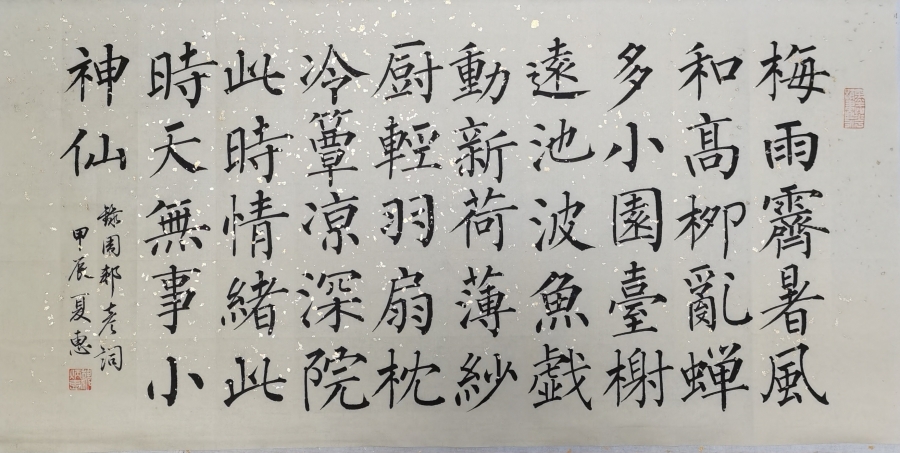 梅雨霽暑風
和高柳亂蝉
多小園臺榭
遠池波魚戯
動新荷薄紗
厨輕羽扇枕
冷簟凉深院
此時情緒此
時天無事小
神仙
錄周邦彦詞
甲辰夏惠